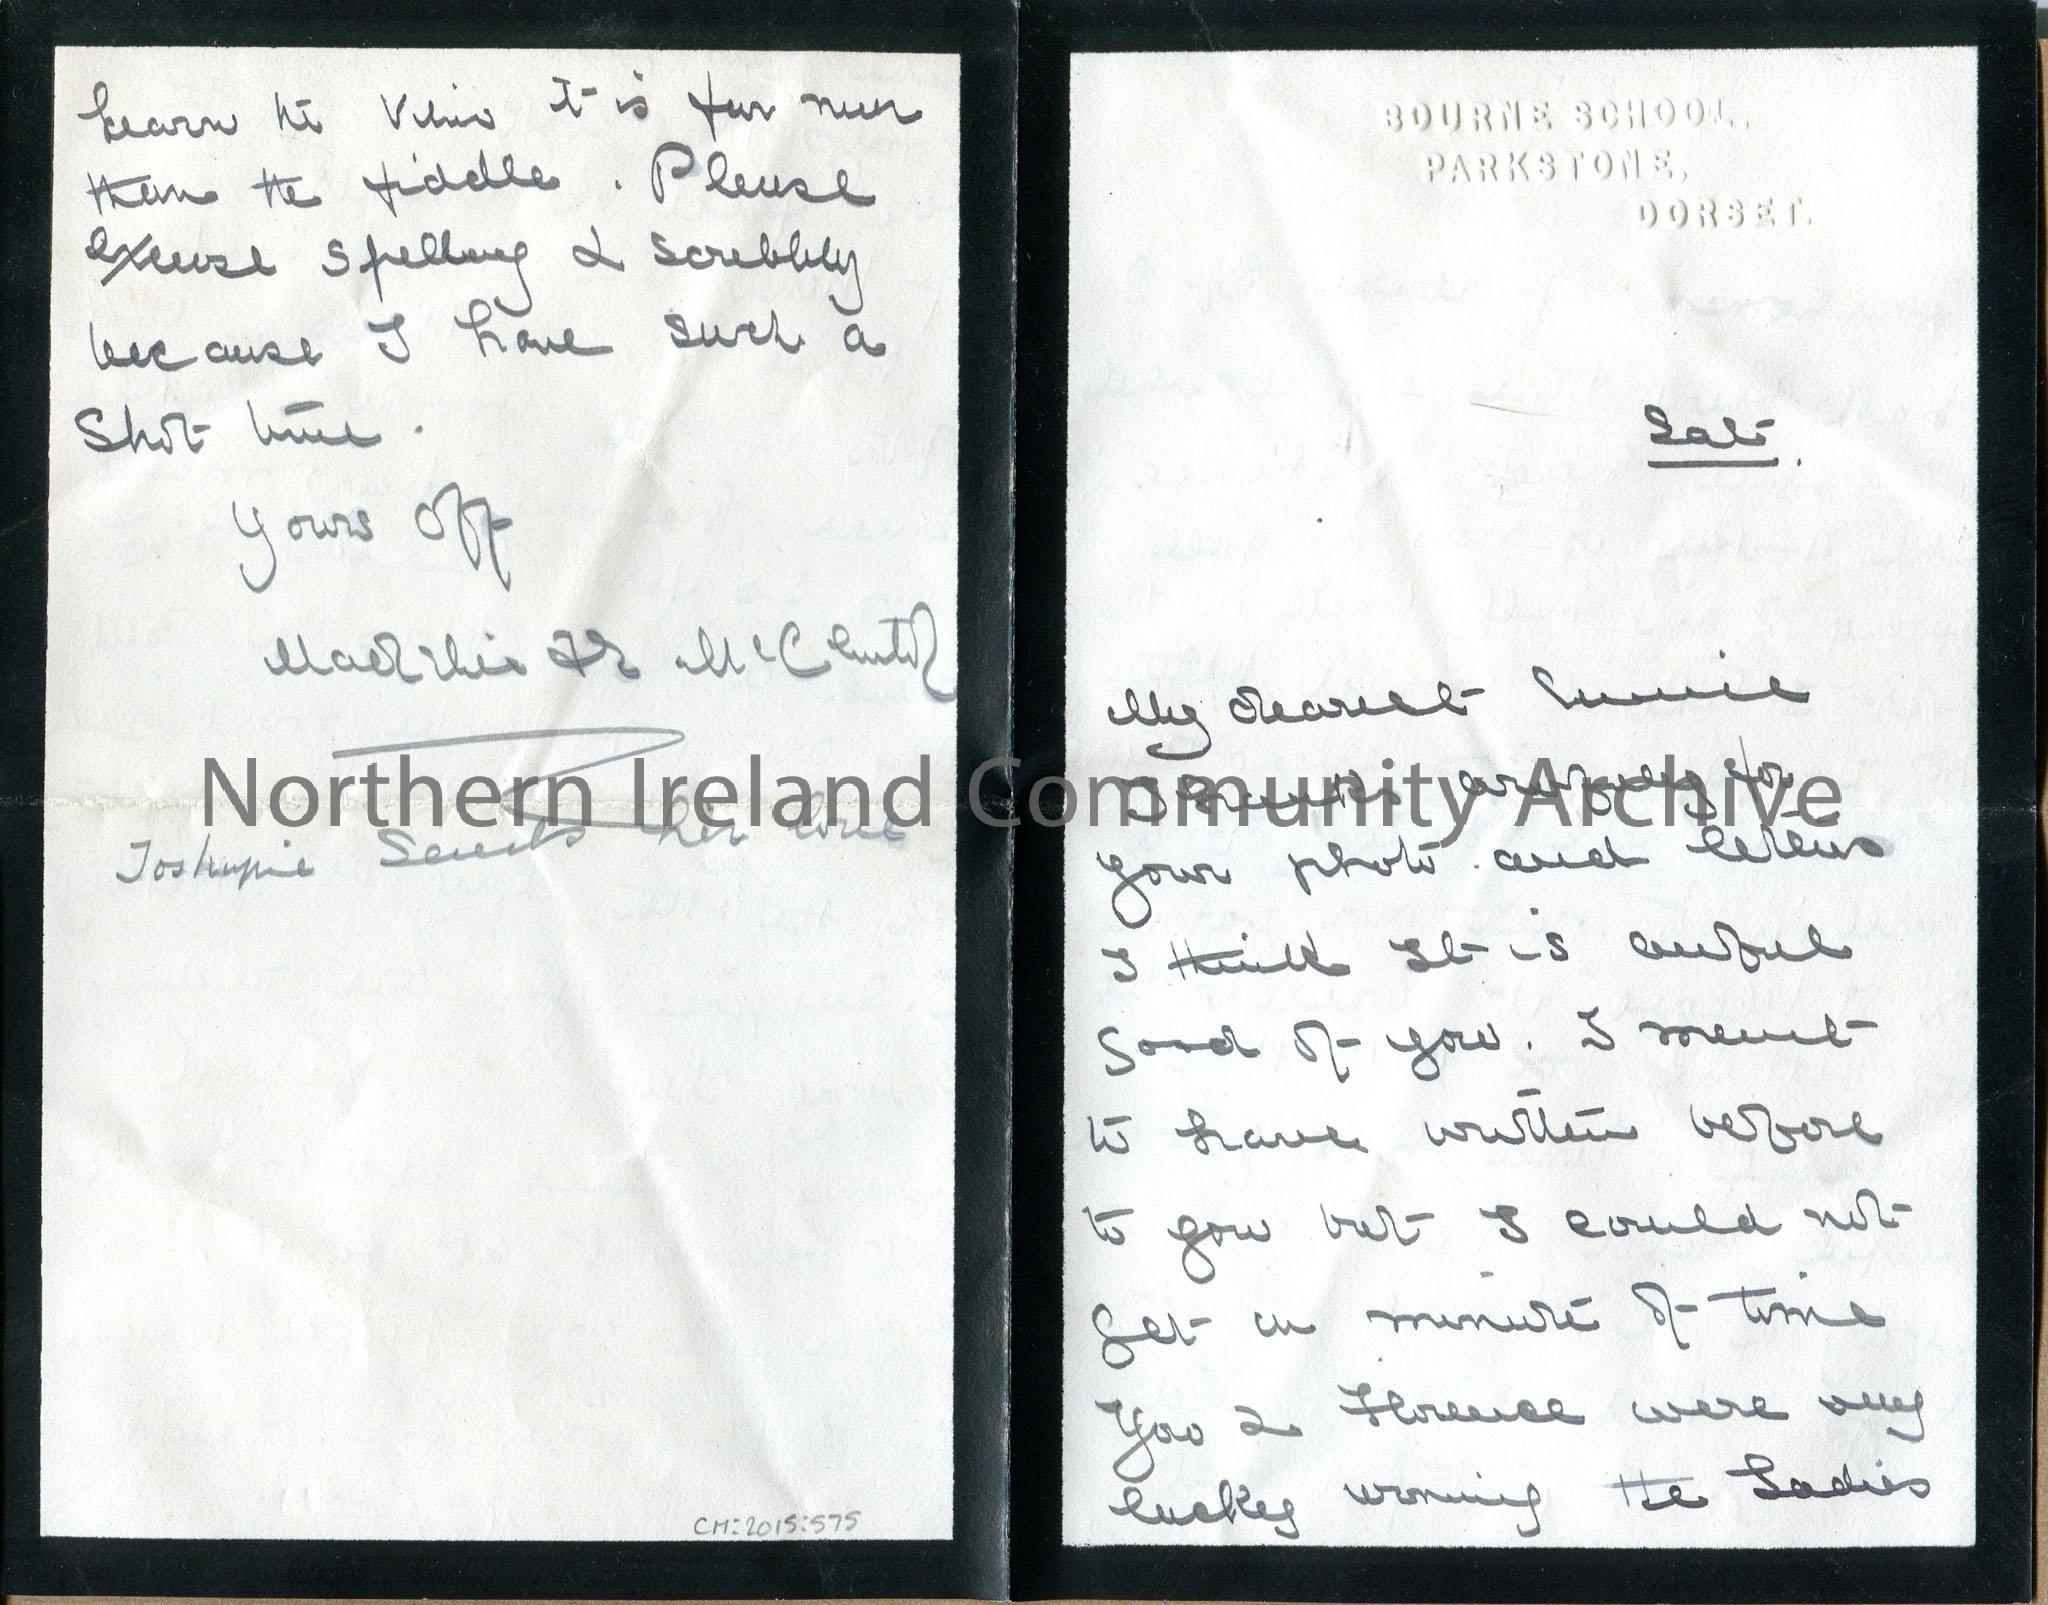 BOURNE SCHOOL,
PARKSTONE,
DORSET.
Sat.
My dearest
Thanks awfully for
your photo and letters
I think It is awful
good of you. I ment
to have written before
to you but I could not
get a minute of time
You & Florence were very
luckey woning the Ladies
learn the it is far
than the fiddle. Please
excuse spelling & scribbly
because I have such a
Shot time.
Yours aff
Toshupie Sends her love
CM:2015:575
Northern Ireland Community Archive